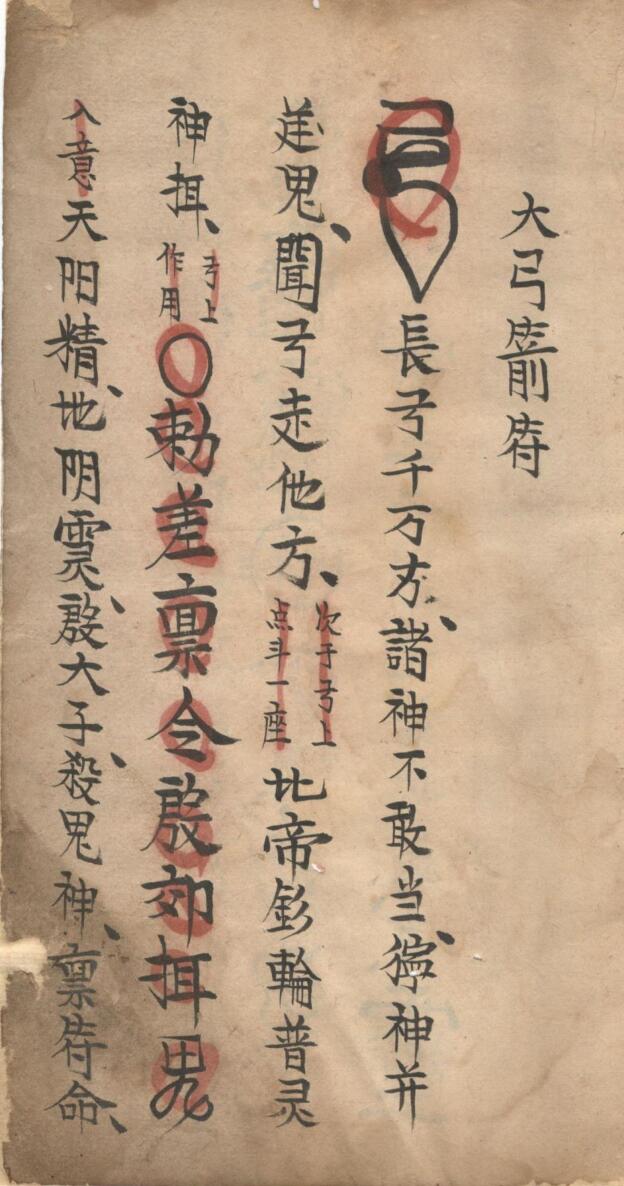 大弓箭符
長弓千万方諸神不敢当神并
鬼聞弓走他方次于弓上点斗一座北帝釤輪普灵
神弓上作用〇勅差禀令殷郊
入意天阳精地阴灵殷大子殺鬼神禀符命